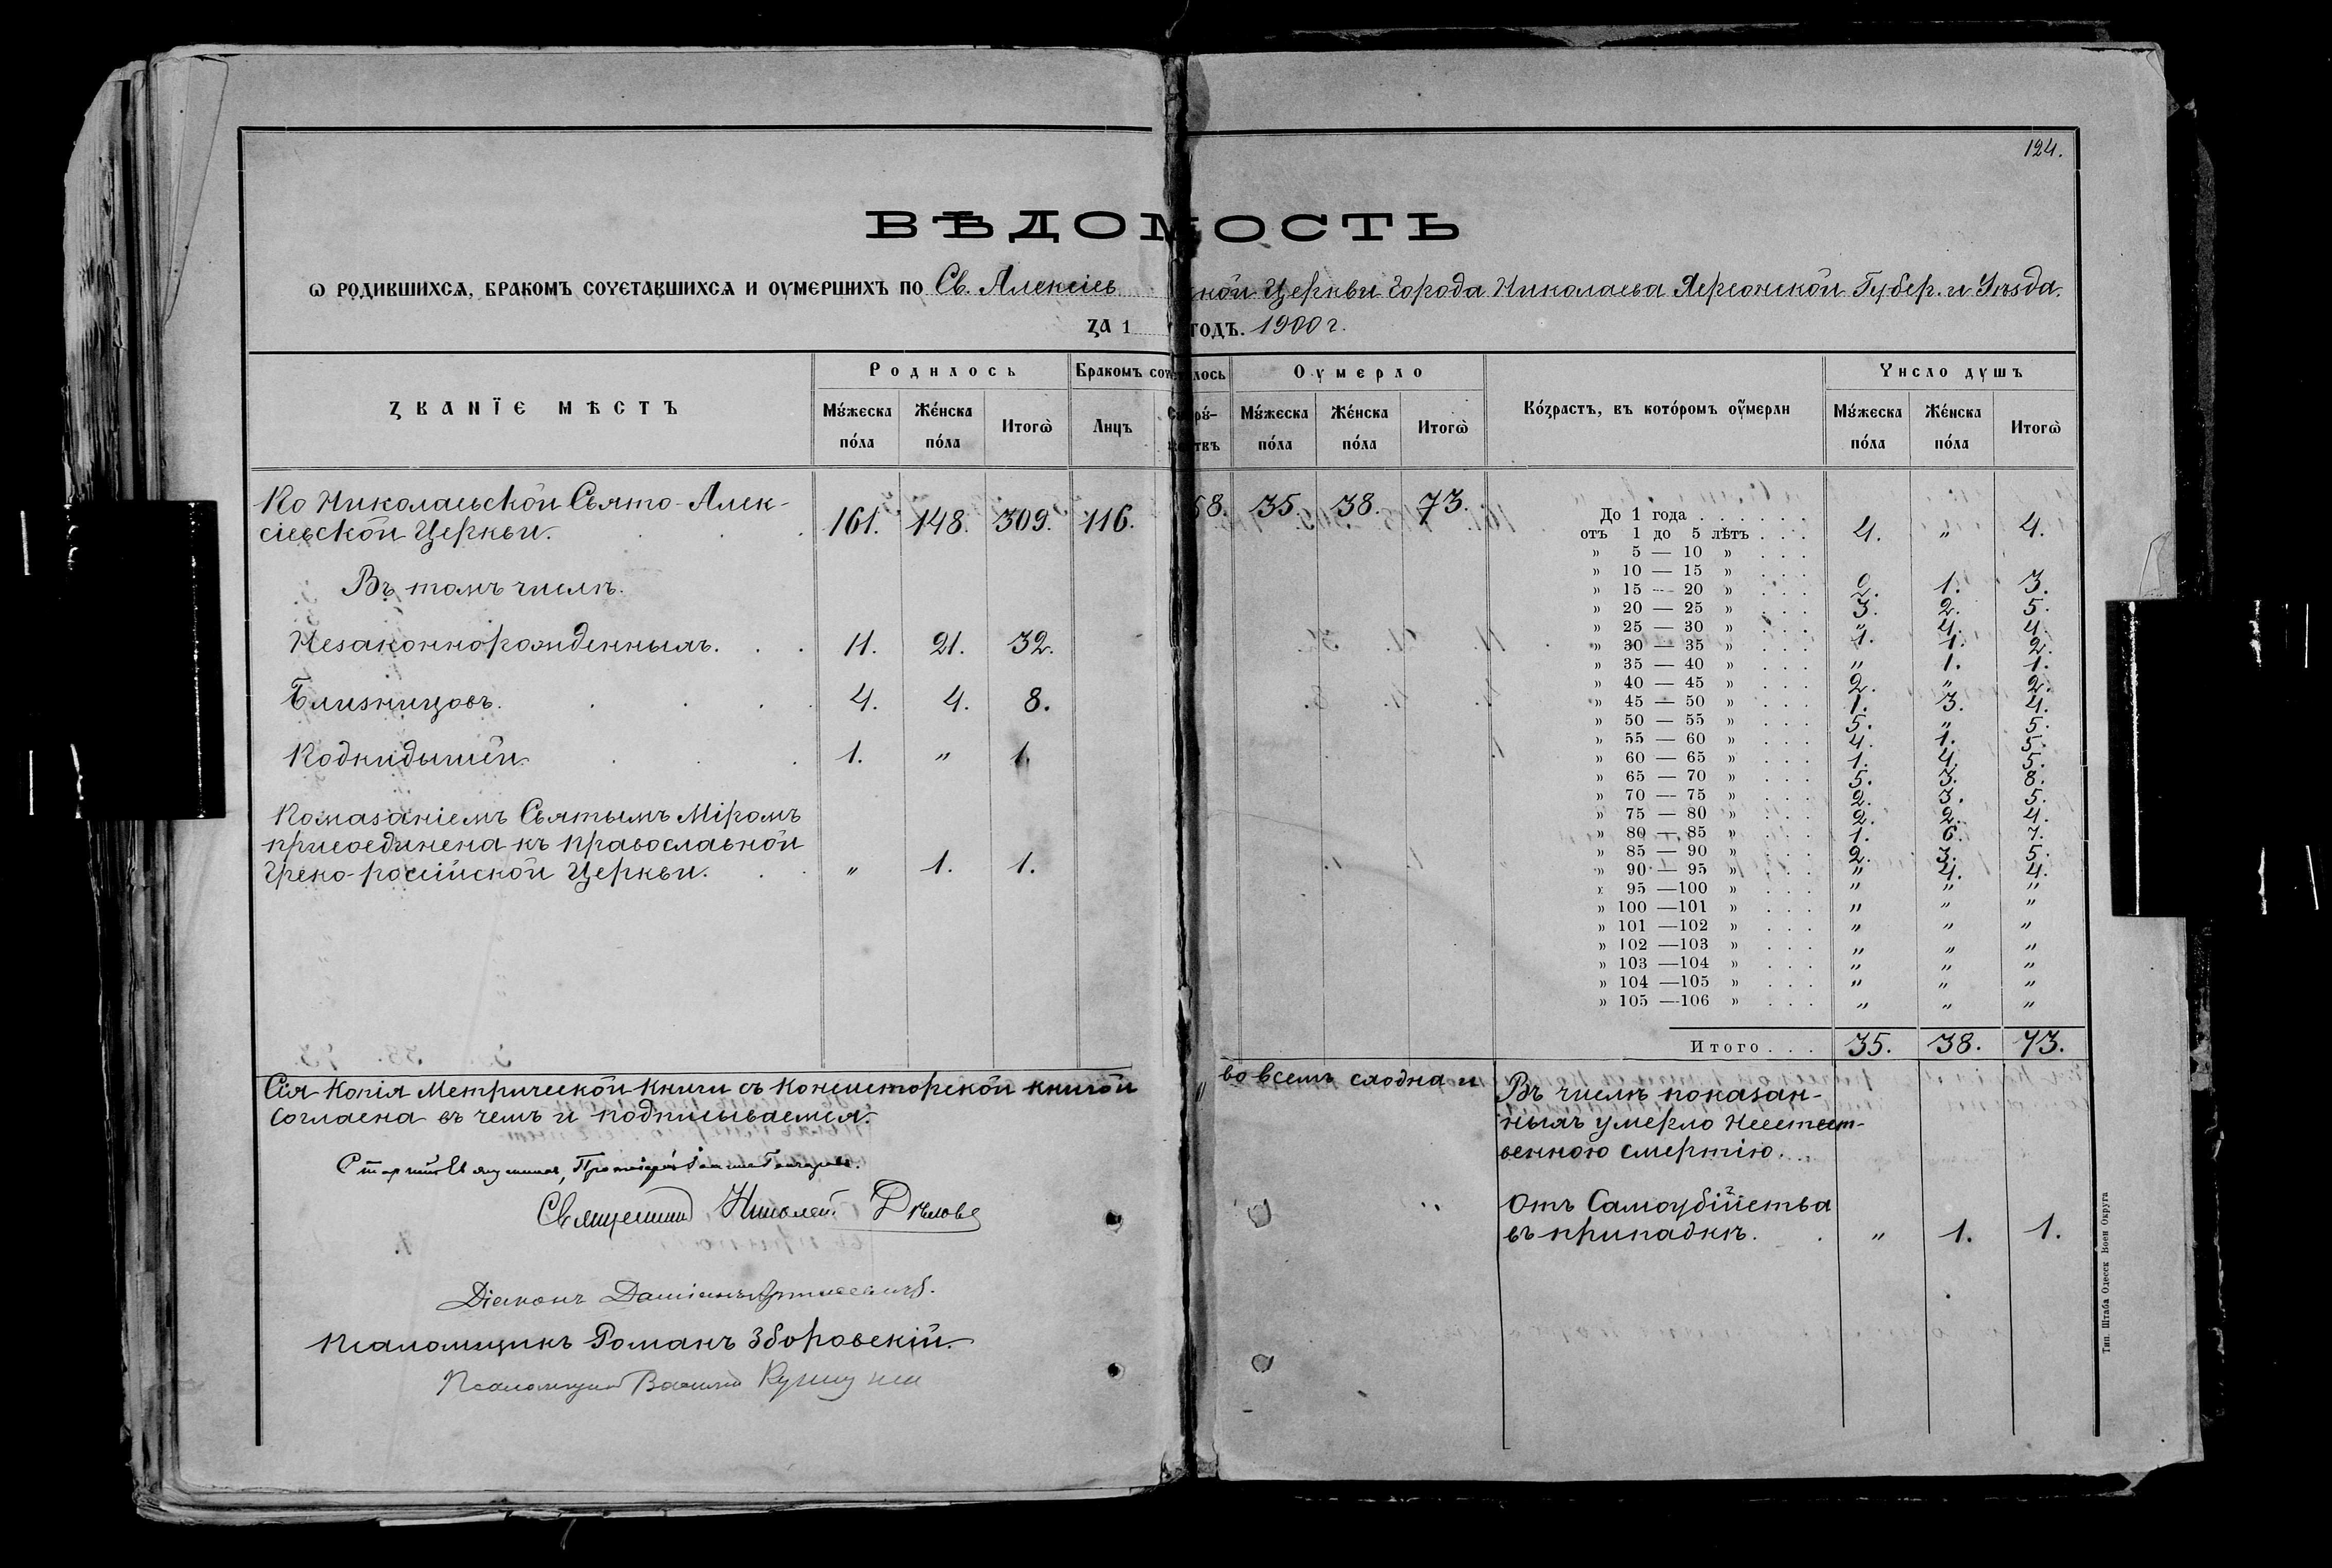 124.
ВѢДОМОСТЬ
Ѡ РОДИВШИХСѦ, БРАКОМЪ СОЧЕТАВШИХСѦ И ОУМЕРШИХЪ ПО Св. Алексіевской Церкви Города Николаева Херсонской Губер. и Уѣзда.
ЗА 1 ГОДЪ. 1900 г.
ЗВАНЇЕ МѢСТЪ
Родилось
Бракомъ сочеталось
Оумерло
Возрастъ, въ которомъ оумерли
Число душъ
Мужеска пола Женска пола Итогѡ Лицъ Супружествъ Мужеска пола Женска пола Итогѡ Мужеска пола Женска пола Итогѡ
По Николаевской Свято-Алек-
сіевской Церкви. 161. 148. 309. 116. 58. 35. 38. 73.
Въ томъ числѣ.
Незаконнорожденныхъ. 11. 21. 32.
Близницовъ. 4. 4. 8.
Подкидышей 1. " 1.
Помазаніемъ Святымъ Міромъ
присоединена къ православной
Греко-россійской Церкви. " 1. 1.
До 1 года . . . . . .
отъ 1 до 5 лѣтъ . . . 4. " 4.
» 5 — 10 » . . .
» 10 — 15 » . . .
» 15 — 20 » . . . 2. 1. 3.
» 20 — 25 » . . . 3. 2. 5.
» 25 — 30 » . . . " 4. 4.
» 30 — 35 » . . . 1. 1. 2.
» 35 — 40 » . . . " 1. 1.
» 40 — 45 » . . . 2. " 2.
» 45 — 50 » . . . 1. 3. 4.
» 50 — 55 » . . . 5. " 5.
» 55 — 60 » . . . 4. 1. 5.
» 60 — 65 » . . . 1. 4. 5.
» 65 — 70 » . . . 5. 3. 8.
» 70 — 75 » . . . 2. 3. 5.
» 75 — 80 » . . . 2. 2. 4.
» 80 — 85 » . . . 1. 6. 7.
» 85 — 90 » . . . 2. 3. 5.
» 90 — 95 » . . . " 4. 4.
» 95 —100 » . . . " " "
» 100 —101 » . . . " " "
» 101 —102 » . . . " " "
» 102 —103 » . . . " " "
» 103 —104 » . . . " " "
» 104 —105 » . . . " " "
» 105 —106 » . . . " " "
Итого . . . 35. 38. 73.
Сія Копія Метрической Книги съ Консисторской книгой во всемъ сходна и
согласна въ чемъ и подписываемся.
Протоіерей
Священникъ Николай
Діаконъ
Псаломщикъ Романъ Зборовскій.
Псаломщикъ Василій
Въ числѣ показан-
ныхъ умерло Неестест-
венною смертію.
Отъ Самоубійства
въ припадкѣ. " 1. 1.
Тип. Штаба Одесск Воен Округа